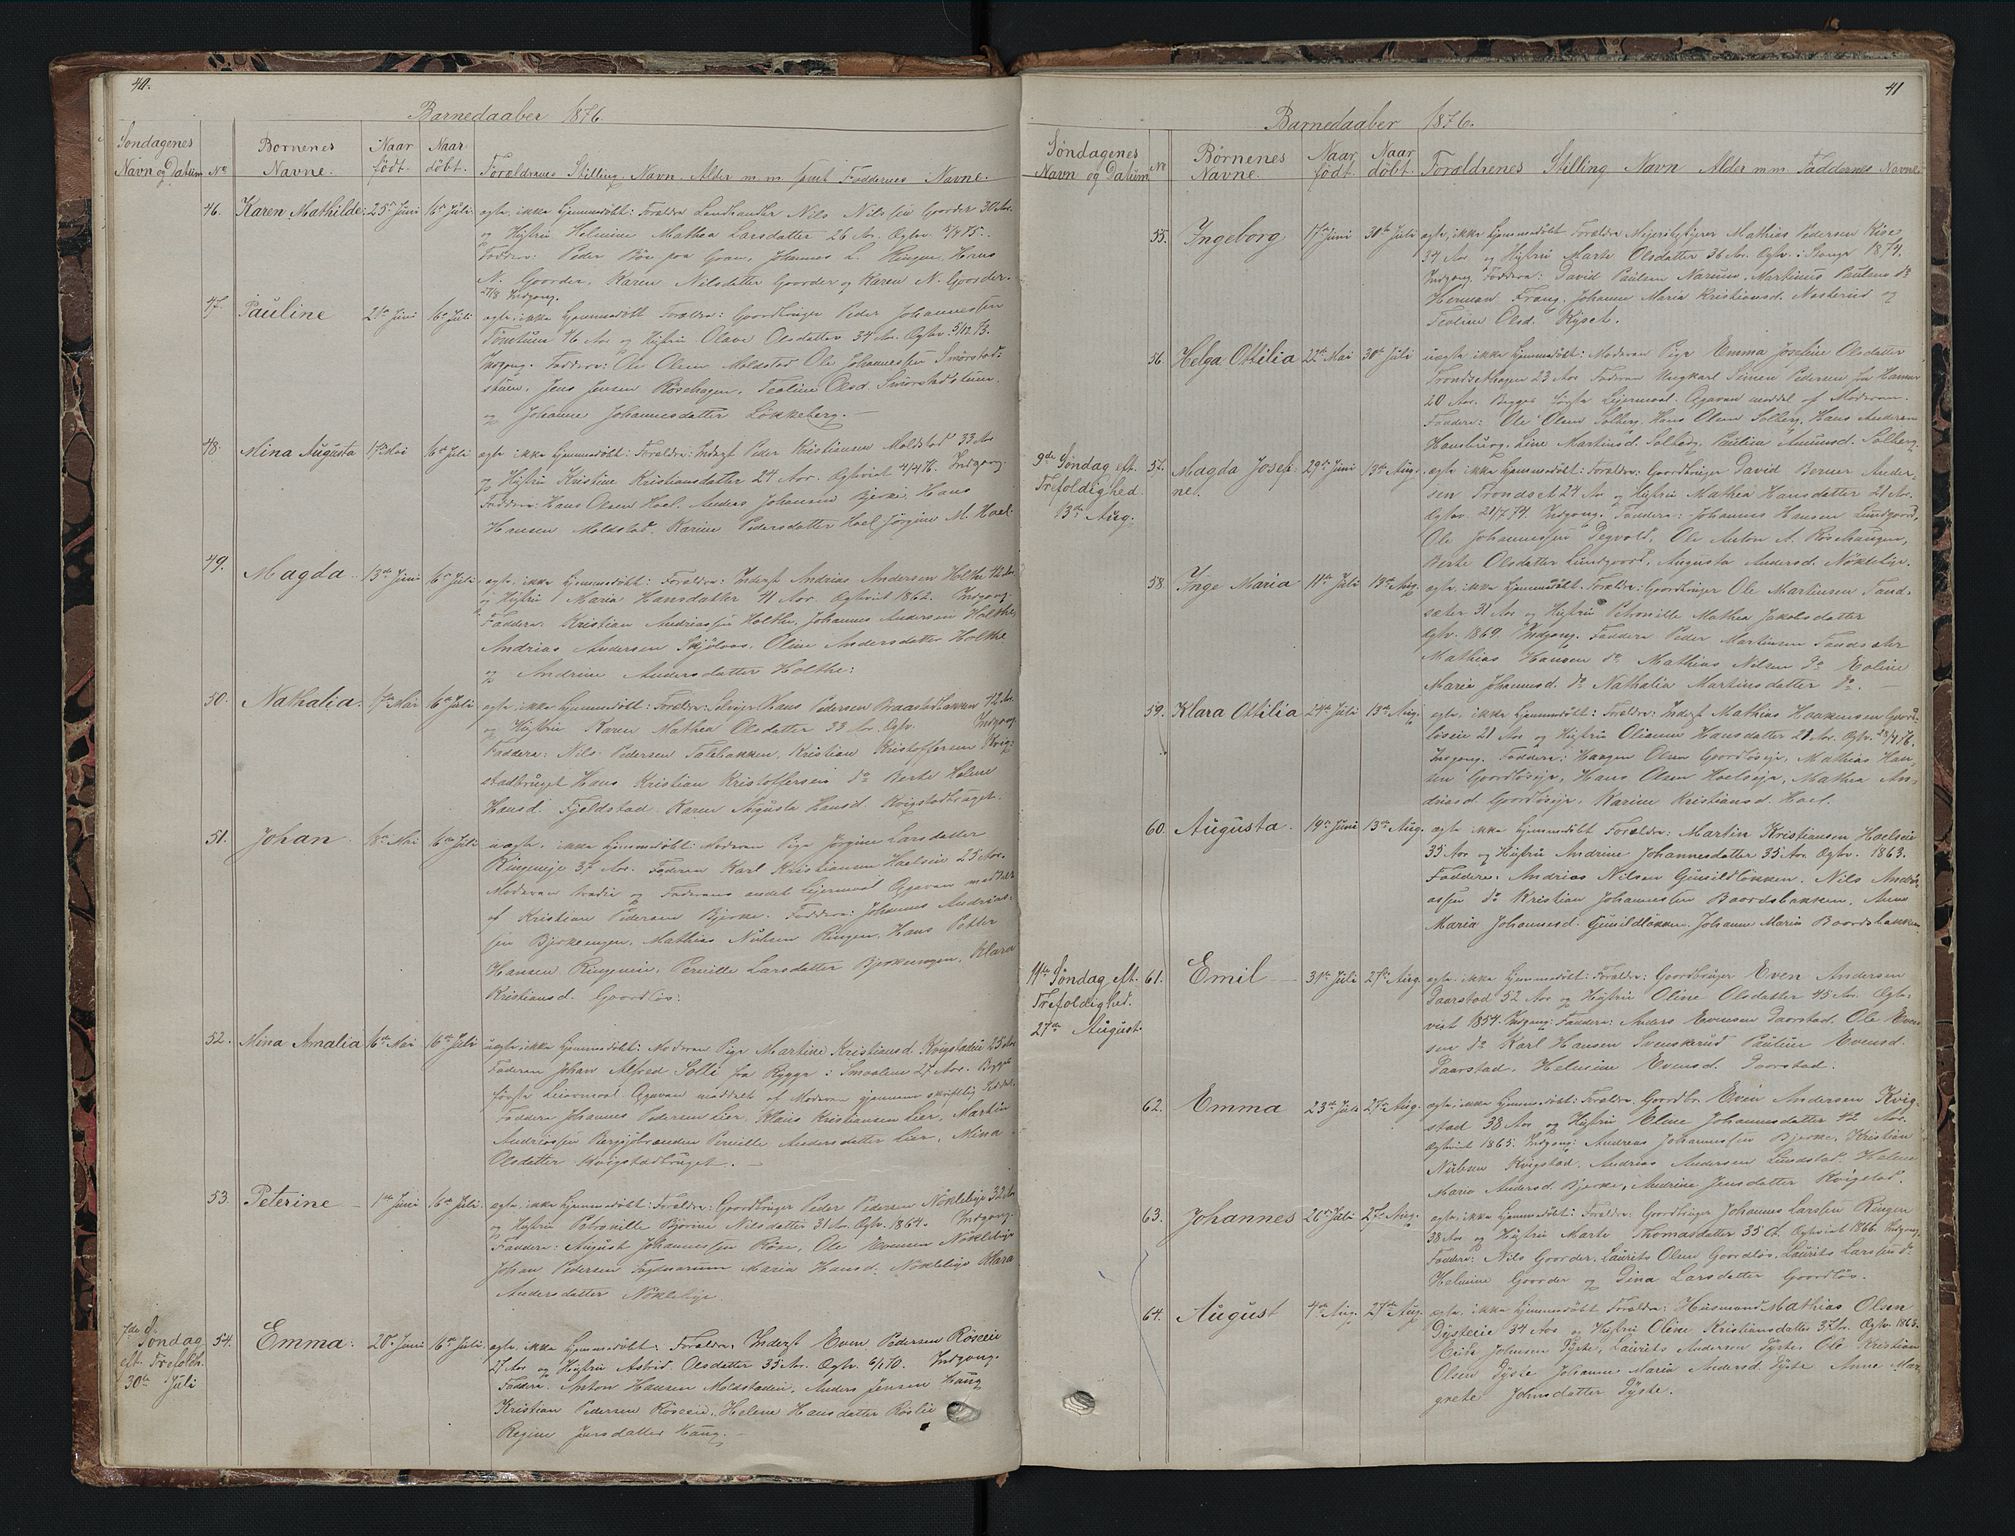 40.
Barnedaaber 1876.
Søndagenes Navn og Datum
No
Børnenes Navne.
Naar født.
Naar døbt.
Forældrenes Stilling, Navn, Alder m.m. samt Faddernes Navne.
46. Karen Mathilde. 25de Juni 16de Juli ægte, ikke hjemmedøbt: Forældre Landhandler Nils Nilssen Gaarder 30 Aar
og Hustru Helmine Mathea Larsdatter 26 Aar. Ægtev.
Faddere: Peder Johannes L. Ringen, Hans
N. Gaarder, Karen Nilsdatter Gaarder og Karen N. Gaarder.
47. Pauline 21de Juni 16de Juli ægte, ikke hjemmedøbt Forældre: Gaardbruger Peder Johannessen
46 Aar og Hustru Olave Olsdatter 34 Aar. Ægtev. 5/12 73.
Indgang. Faddere: Ole Olsen Moldstad Ole Johannessen Smørstad-
stuen, Jens Jensen Røsehagen, Teoline Olsd. Smørstadstuen,
og Johanne Johannesdatter Løkkeberg. —
48. Mina Augusta 17de Mai 16de Juli ægte ikke hjemmedøbt: Forældre: Inderst Peder Kristiansen Moldstad 33 Aar
og Hustru Kristine Kristiansdatter 24 Aar. Ægteviet 4/4 76. Indgang.
Faddere: Hans Olsen Hoel. Andreas Johansen Bjerke, Hans
Hansen Moldstad, Karine Pedersdatter Hoel Jørgine M. Hoel.
49. Magda. 13de Juni 16de Juli ægte, ikke hjemmedøbt: Forældre: Inderst Andrias Andersen Holthe 42 Aar
og Hustru Maria Hansdatter 41 Aar. Ægteviet 1862. Indgang.
Faddere: Kristian Andriassen Holthe, Johannes Andersen Holthe,
Andrias Andersen Oline Andersdatter Holthe
og Andrine Andersdatter Holthe:
50. Nathalia. 17de Mai 16de Juli ægte ikke hjemmedøbt: Forældre: Hans Pedersen Braastadbakken 42 Aar
og Hustru Karen Mathea Olsdatter 33 Aar. Ægtev. Indgang
Faddere: Nils Pedersen Kristian Kristoffersen Kvig-
stadbruget Hans Kristian Kristoffersen do Berte Helene
Hansd. Fjeldstad. Karen Augusta Hansd. Kvigstadbruget.
51. Johan 18de Mai 16de Juli uægte, ikke hjemmedøbt: Moderen Pige Jørgine Larsdatter
Ringeneje 37 Aar. Faderen Karl Kristiansen Hoelseie 25 Aar.
Moderens tredie og Faderens andet Leiermaal Opgaven meddelt
af Kristian Pedersen Bjerke. Faddere: Johannes Andrias-
sen Bjerkeengen, Mathias Ringen, Hans Petter
Hansen Pernille Larsdatter Bjerkeengen, Klara
Kristiansd. Gaardløs.
52. Mina Amalia 16de Mai 16de Juli uægte, ikke hjemmedøbt: Moderen Pige Martine Kristiansd. Kvigstadeie 25 Aar
Faderen Johan Alfred fra Rygge i Smaalene 27 Aar. Begges
første Leiermaal. Opgaven meddelt af Moderen gjennem skriftlig
Faddere Johannes Pedersen Lier, Klaus Kristiansen Lier, Martin
Andriassen Pernille Andersdatter Lier, Mina
Olsdatter Kvigstadbruget. —
53. Peterine — 1ste Juni 16de Juli ægte, ikke hjemmedøbt: Forældre: Gaardbruger Peder Pedersen Nøklebye 32 Aar
og Hustru Petronille Nilsdatter 31 Aar. Ægtev. 1864. Indgang.
Faddere: August Johannessen Røse, Ole Evensen Nøklebye
Johan Pedersen Maria Hansd. Nøklebye Klara
Andersdatter Nøklebye.
7de Søndag
eft. Trefoldh.
30te Juli
54. Emma: 20de Juni 16de Juli ægte, ikke hjemmedøbt: Forældre, Inderst Even Pedersen Røseeie
27 Aar og Hustru Astrid Olsdatter 35 Aar. Ægtev. Indgang.
Faddere. Anton Hansen Moldstadeie, Anders Jensen Haug
Kristian Pedersen Røseeie, Helene Hansdatter
Regine Jensdatter Haug. —
41
Barnedaaber 1876.
Søndagenes Navn og Datum
No
Børnenes Navne.
Naar født.
Naar døbt.
Forældrenes Stilling Navn Alder m.m. Faddernes Navne
55. Ingeborg 17de Juni 30te Juli ægte, ikke hjemmedøbt Forældre Mejeribestyrer Mathias Pedersen Røise
34 Aar og Hustru Marte Olsdatter 36 Aar. Ægtev. i Stange 1874.
Indgang. Faddere: David Paulsen Narum, Martinus Paulsen do
Herman Frang, Johanne Maria Kristiansd. og
Teoline Olsd.
56. Helga Ottilia 22de Mai 30te Juli uægte ikke hjemmedøbt: Moderen Pige Emma Josefine Olsdatter
Trondsethagen 23 Aar Faderen Ungkarl Simen Pedersen fra Hamar
20 Aar. Begges første Leiermaal. Opgaven meddel. af Moderen.
Faddere: Ole Olsen Solberg, Hans Olsen Solberg, Hans Andersen
Line Martinsd. Solberg, Pauline Amundsd. Solberg.
9de Søndag eft.
Trefoldighed.
13de Aug.
57. Magda Josefi-
ne. 29de Juni 13de Aug. ægte ikke hjemmedøbt: Forældre: Gaardbruger David Berner Ander-
sen Trondset 24 Aar og Hustru Mathea Hansdatter 21 Aar.
Ægtev. 21/7 74. Indgang. Faddere: Johannes Hansen Lundgaard,
Ole Johannessen Ole Anton A. Røsehaugen,
Berte Olsdatter Lundgaard, Augusta Andersd. Nøkleby.
58. Inge Maria 11te Juli 13de Aug. ægte ikke hjemmedøbt. Forældre: Gaardbruger Ole Martinsen Sand-
sæter 31 Aar og Hustru Petronille Mathea Jakobsdatter
Ægtv. 1869. Indgang. Faddere Peder Martinsen
Mathias Hansen do Mathias Nilsen do
Maria Johannesd. do Nathalia Martinsdatter do. —
59. Klara Ottilia 24de Juli 13de Aug. ægte ikke hjemmedøbt: Forældre: Inderst Mathias Haakensen Gaard-
løseie 21 Aar og Hustru Oliane Hansdatter 21 Aar. Ægtv. 28/4 76.
Indgang. Faddere: Haagen Olsen Gaardløseje, Mathias Han-
sen Gaardløseje, Hans Olsen Hoelseje, Mathea An-
driasd. Gaardløseje, Karine Kristiansd. Hoel.
60. Augusta. 14de Juni 13de Aug. ægte ikke hjemmedøbt Forældre: Martin Kristiansen Hoelseie
35 Aar og Hustru Andrine Johannesdatter 35 Aar. Ægtv. 1863.
Faddere: Andrias Nilsen Gunildløkken. Nils Andri-
assen do Kristian Johannessen Baardsbakken, Anne
Maria Johannesd. Gunildløkken. Johanne Maria Baardsbakken.
11te Søndag eft.
Trefoldighed.
27de August.
61. Emil — 31te Juli 27de Aug. ægte ikke hjemmedøbt: Forældre: Gaardbruger Even Andersen
Daarstad 52 Aar og Hustru Oline Olsdatter 45 Aar. Ægte-
viet 1854. Indgang: Faddere: Anders Evensen Daarstad. Ole Even-
sen do Karl Hansen Svenskerud Pauline Evensd.
Daarstad, Helmine Evensd. Daarstad.
62. Emma 23de Juli 27de Aug. ægte, ikke hjemmedøbt: Forældre. Gaardbr. Even Andersen Kvig-
stad 38 Aar og Hustru Eline Johannesdatter 42 Aar.
Ægteviet 1865. Indgang: Andreas Johannessen Bjerke, Kristian
Kvigstad, Andrias Andersen Lundstad. Helene
Maria Andersd. Bjerke, Andrine Jensdatter Kvigstad.
63. Johannes 26de Juli 27de Aug. ægte, ikke hjemmedøbt: Forældre. Gaardbruger Johannes Larssen Ringen
38 Aar og Hustru Marte Thomasdatter 35 Ægteviet 1866. Indgang
Faddere: Nils Gaarder, Laurits Olsen Gaardløs. Laurits Larssen do
Helmine Gaarder og Dina Larsdatter Gaardløs.
64. August 4de Aug. 27de Aug. ægte, ikke hjemmedøbt Forældre: Husmand Mathias Olsen
Dysteeie 34 Aar og Hustru Oline Kristiansdatter 37 Aar. Ægtev. 1863.
Johnsen Dyste, Laurits Andersen Dyste. Ole Kristian
Olsen Dyste Johanne Maria Andersd. Dyste. Anne Mar-
grete Johnsdatter Dyste.